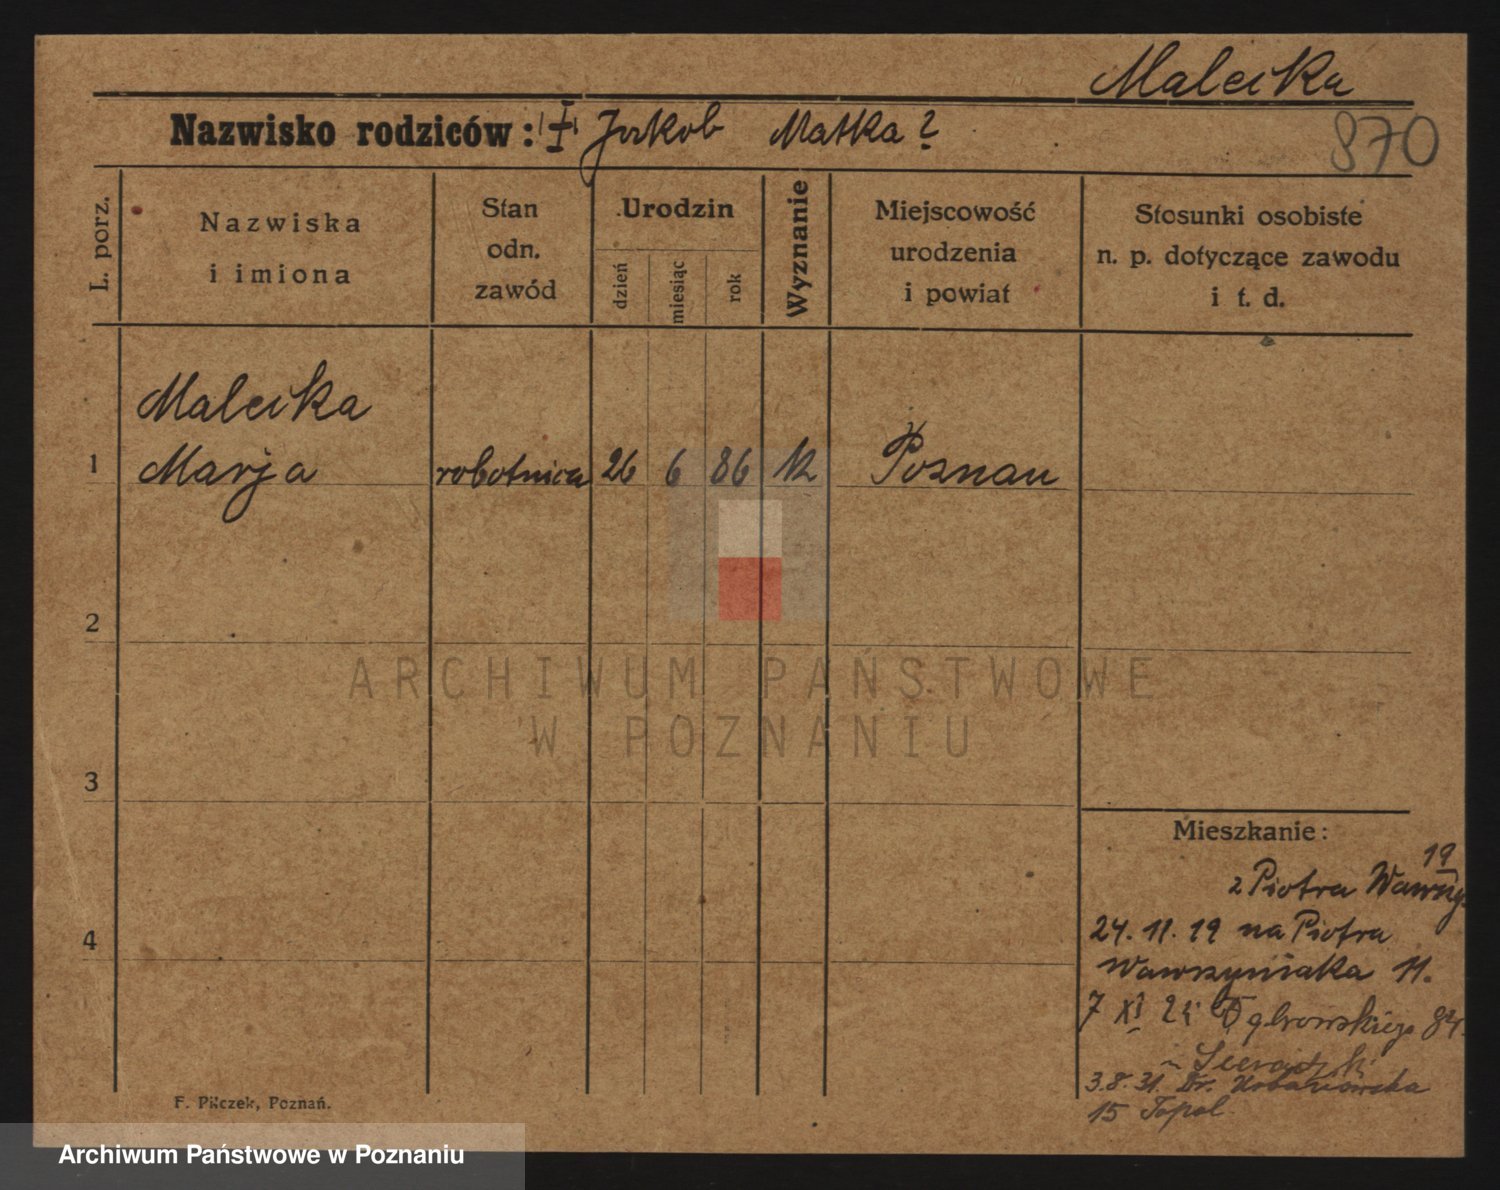 Malecka
Nazwisko rodziców: Jakob Matka?
870
L. porz.
Nazwiska
i imiona
Stan
odn.
zawód
Urodzin
dzień
miesiąc
rok
Wyznanie
Miejscowość
urodzenia
i powiat
Stosunki osobiste
n. p. dotyczące zawodu
i t. d.
Malecka
1 Marja robotnica 26 6 86 Poznań
2
ARCHIWUM PAŃSTWOWE
W POZNANIU
3
Mieszkanie:
19
z Piotra Wawrzy
4
24. 11. 19 na Piotra
Wawrzyniaka 11.
7 XI Dąbrowskiego
3.8.31. Dr.
15 Topol
F. Pilczek, Poznań.
Archiwum Państwowe w Poznaniu